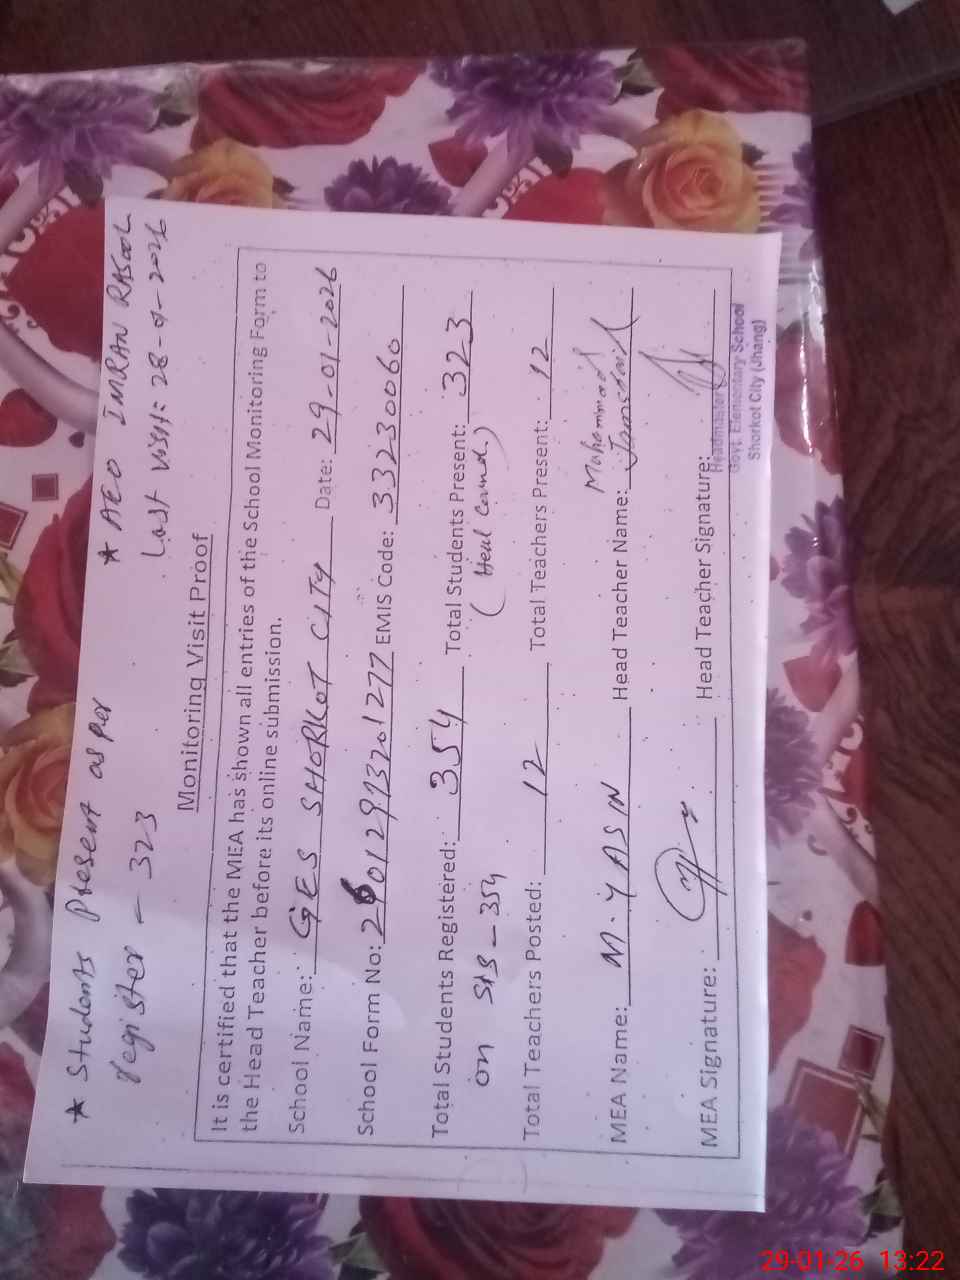 ★ Students Present as per
register – 323
★ AEO IMRAN RASOOL
Last Visit: 28-01-2026
Monitoring Visit Proof
It is certified that the MEA has shown all entries of the School Monitoring Form to
the Head Teacher before its online submission.
School Name: GES SHORKOT CITY Date: 29-01-2026
School Form No: 260129133201277 EMIS Code: 33230060
Total Students Registered: 354 Total Students Present: 323
on SIS – 354 (Head Count)
Total Teachers Posted: 12 Total Teachers Present: 12
MEA Name: M. YASIN Head Teacher Name: Muhammad Jamshaid
MEA Signature: Head Teacher Signature:
Headmaster
Govt. Elementary School
Shorkot City (Jhang)
29-01-26 13:22